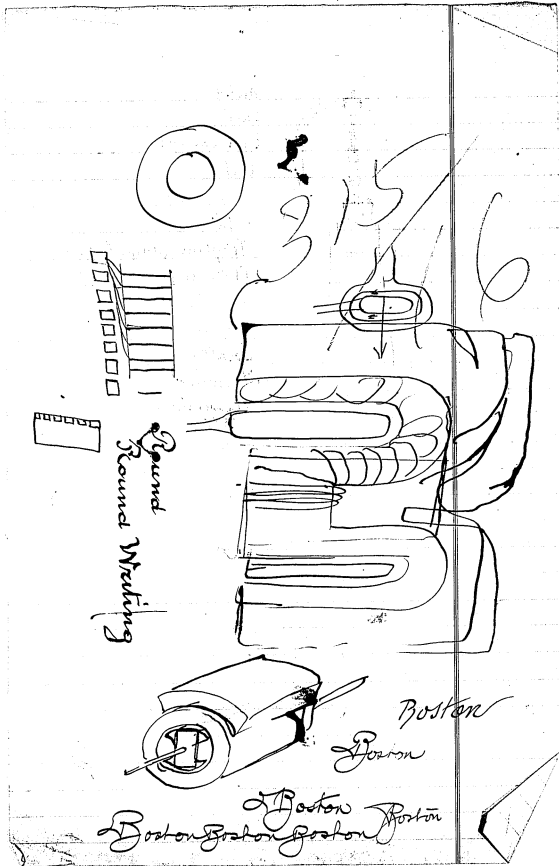 3 15 6
Round
Round Writing
Boston
Boston
Boston
Boston Boston Boston Boston